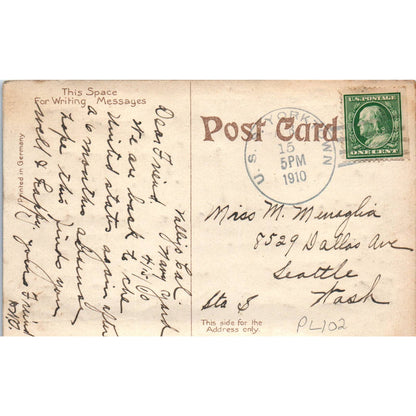 This Space
For Writing Messages
Vallejo Cal
Navy Yard
4/15/10
Dear Friend.
We are back to the
United states again after
a 6 months absence
hope this finds you
well & Happy
yours Friend
Printed in Germany
Post Card
U.S.S. YORKTOWN
15
5PM
1910
U.S. POSTAGE
ONE CENT
Miss M. Menaglia
8529 Dallas Ave
Seattle
Wash
Sta S
This side for the
Address only.
PL102